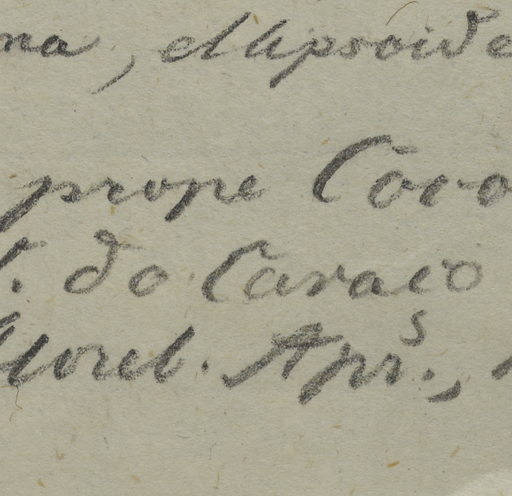 na, ellipsoida
prope Coro
. do Caraco
Florel. Aprs.,